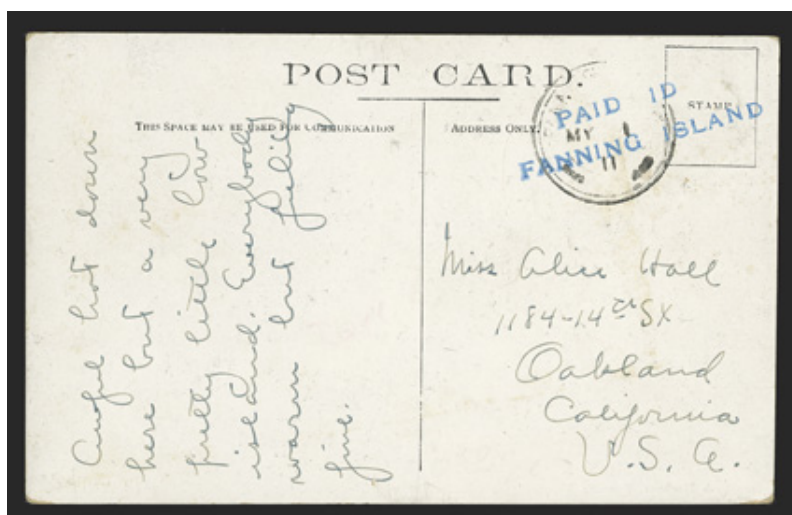 POST CARD.
THIS SPACE MAY BE USED FOR COMMUNICATION
ADDRESS ONLY.
STAMP
PAID 1D
FANNING ISLAND
MY 1
11
Awful hot down
here but a very
pretty little low
island. Everybody
warm but feeling
fine.
Miss Alice Hall
1184-14th St
Oakland
California
U.S.A.